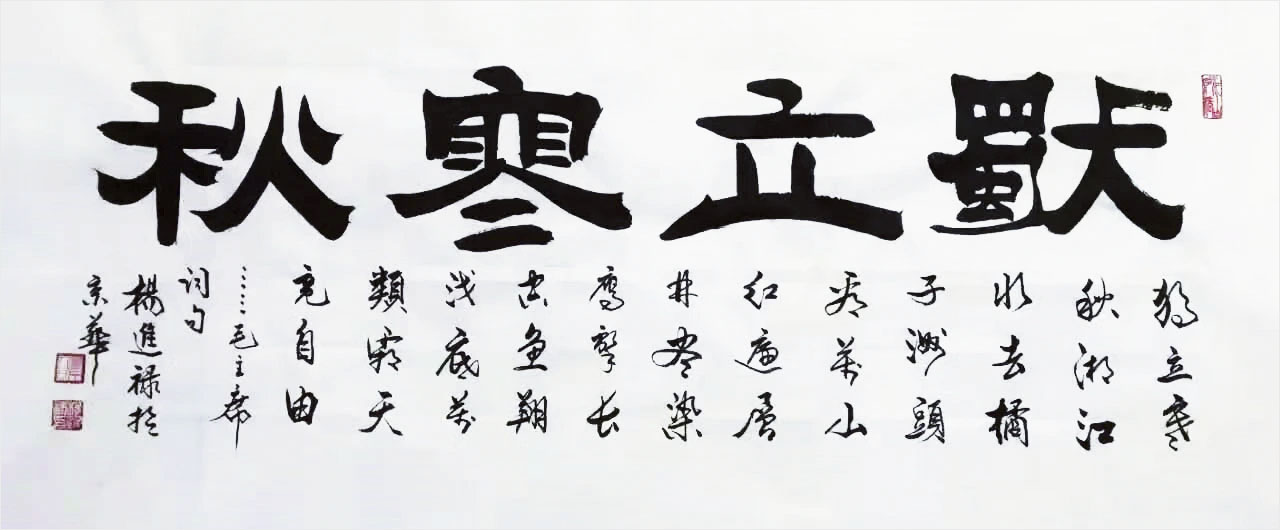 獨立寒秋
獨立寒
秋湘江
北去橘
子洲頭
看萬山
红遍層
林盡染
鹰擊长
空鱼翔
浅底萬
類霜天
竞自由
……毛主席
词句
楊進禄於
京華